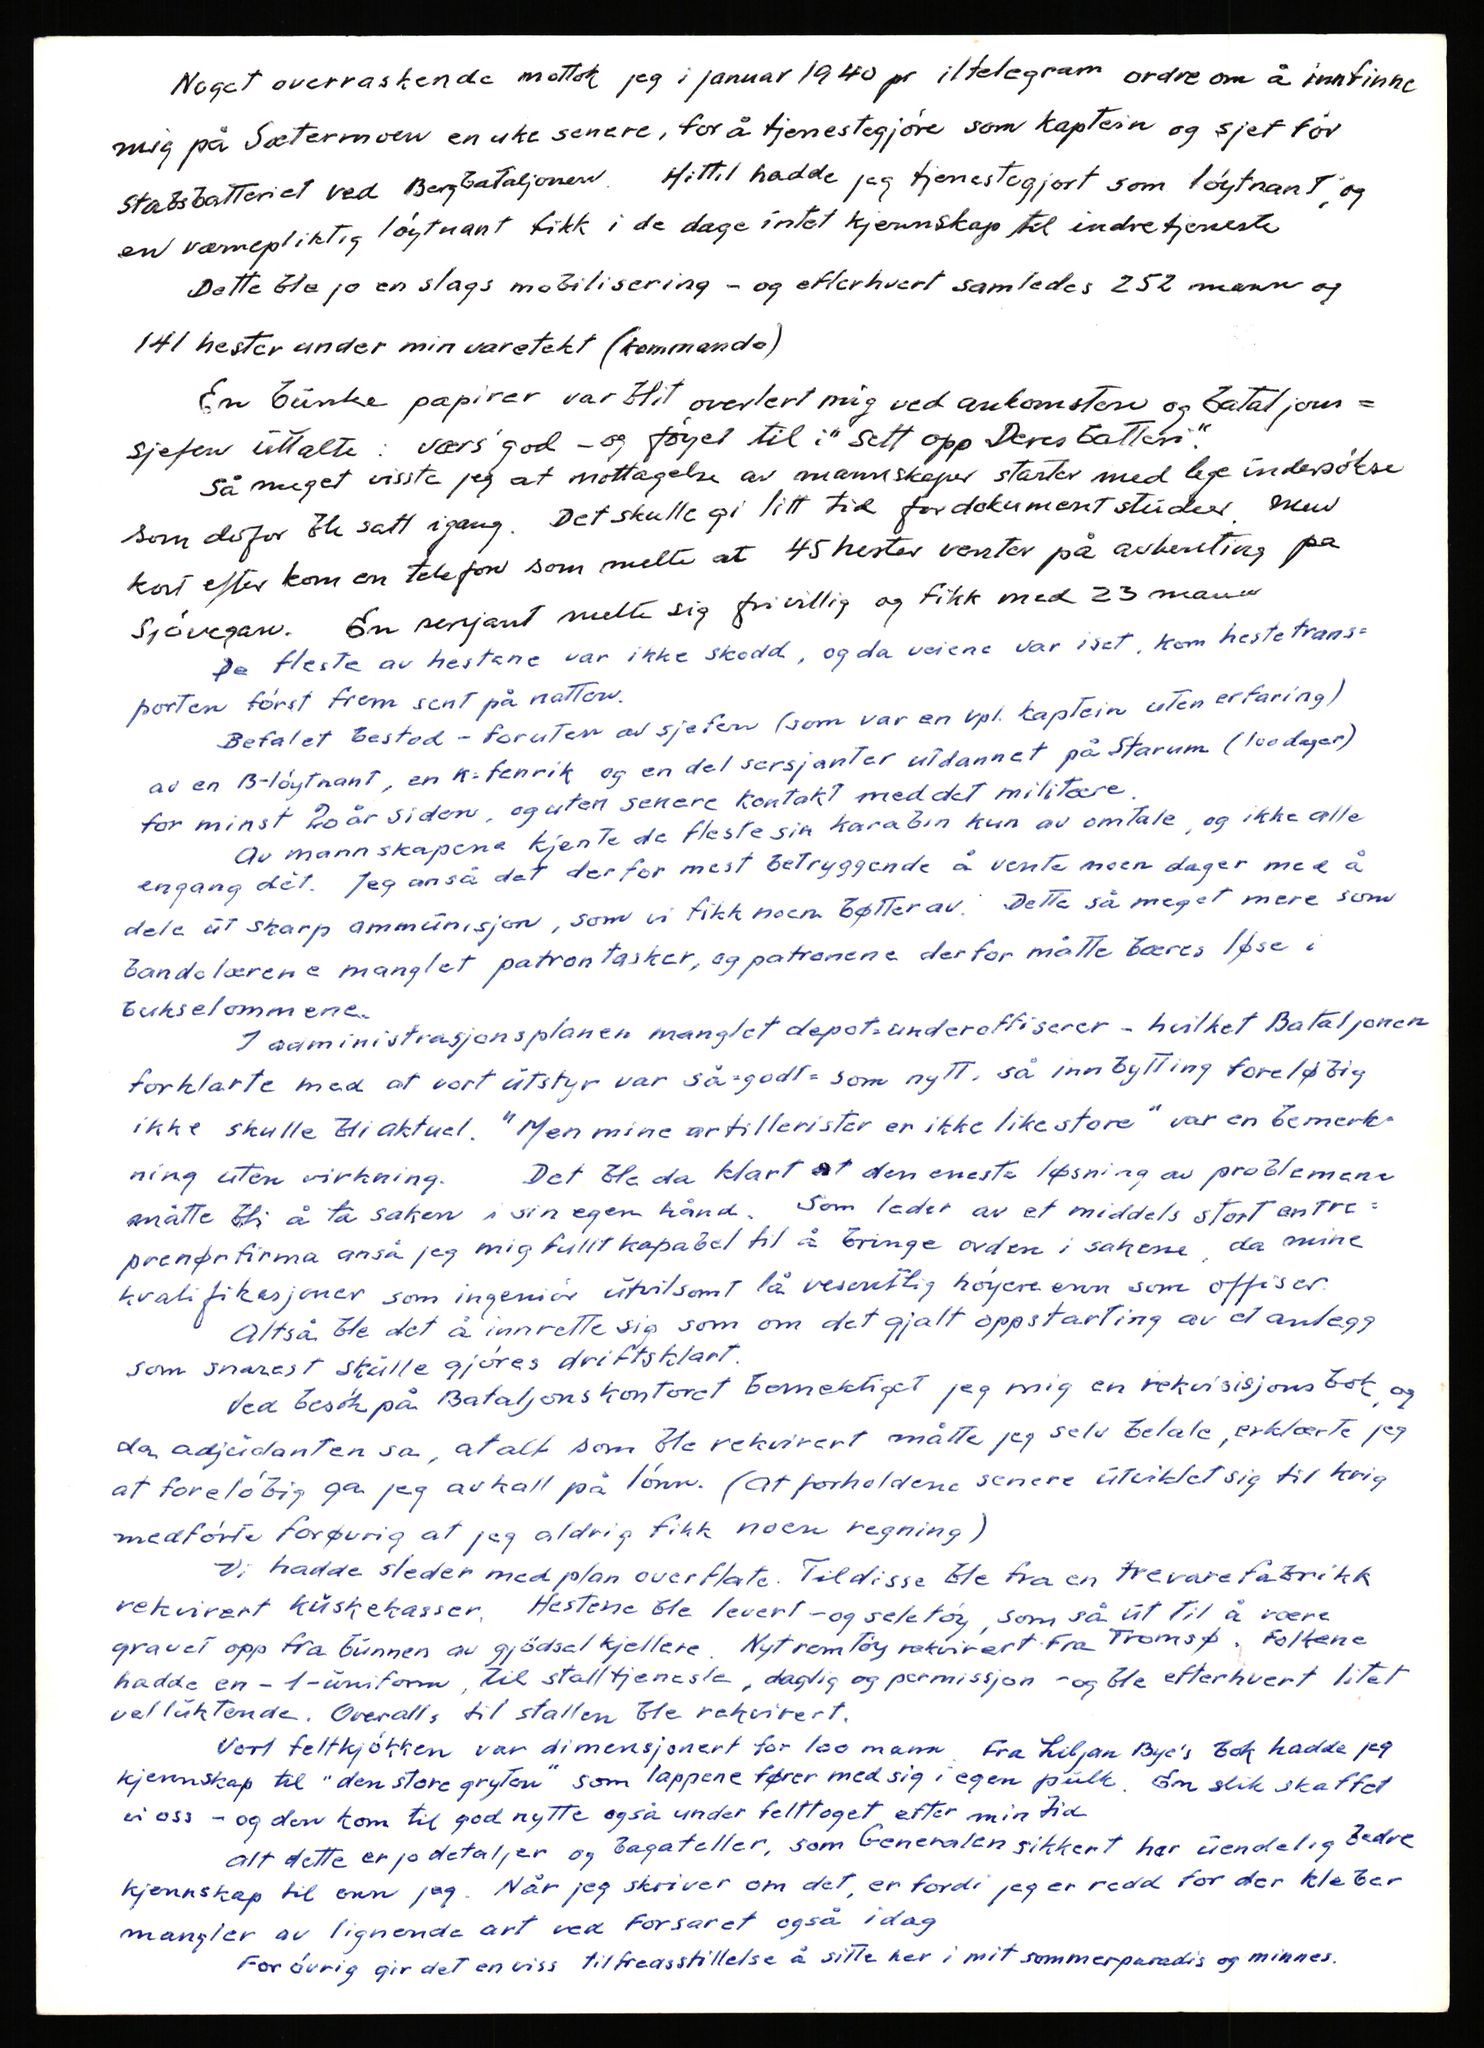 Noget overraskende mottok jeg i januar 1940 pr iltelegram ordre om å innfinne
mig på Sætermoen en uke senere, for å tjenestegjóre som kaptein og sjef fór
stabsbatteriet ved Bergbataljonen. Hittil hadde jeg tjenestegjort som lóytnant, og
en værnepliktig lóytnant fikk i de dage intet kjennskap til indretjeneste
Dette ble jo en slags mobilisering - og efterhvert samledes 252 mann og
141 hester under min varetekt (kommando)
En bunke papirer var blit overlert mig ved ankomsten og bataljons=
sjefen uttalte: værs' god - og fóyet til i "Sett opp Deres batteri".
Så meget visste jeg at mottagelse av mannskaper starter med lege undersókse
som derfor ble satt igang. Det skulle gi litt tid for dokument studier. Men
kort efter kom en telefon som melte at 45 hester venter på avhenting på
Sjóvegan. En serjant melte sig frivillig og fikk med 23 mann
De fleste av hestene var ikke skodd, og da veiene var iset, kom hestetrans=
porten fórst frem sent på natten.
Befalet bestod - foruten av sjefen (som var en vpl. kaptein uten erfaring)
av en B-lóytnant, en K=fenrik og en del sersjanter utdannet på Starum (100 dager)
for minst 20 år siden, og uten senere kontakt med det militære.
Av mannskapene kjente de fleste sin karabin kun av omtale, og ikke alle
engang dét. Jeg anså det derfor mest betryggende å vente noen dager med å
dele ut skarp ammunisjon, som vi fikk noen bøtter av. Dette så meget mere som
bandolærene manglet patrontasker, og patronene derfor måtte bæres løse i
bukselommene.
I administrasjonsplanen manglet depot=underoffiserer - hvilket Bataljonen
forklarte med at vort utstyr var så=godt=som nytt, så innbytting foreløbig
ikke skulle bli aktuel. "Men mine artillerister er ikke like store" var en bemerk=
ning uten virkning. Det ble da klart at den eneste løsning av problemene
måtte bli å ta saken i sin egen hånd. Som leder av et middels stort entre=
prenørfirma anså jeg mig fullt kapabel til å bringe orden i sakene, da mine
kvalifikasjoner som ingeniór utvilsomt lå vesentlig hóyere enn som offiser.
Altså ble det å innrette sig som om det gjalt oppstarting av et anlegg
som snarest skulle gjóres driftsklart.
Ved besók på Bataljonskontoret bemektiget jeg mig en rekvisisjonsbok, og
da adjudanten sa, at alt som ble rekvirert måtte jeg selv betale, erklærte jeg
at foreló­big ga jeg avkall på lónn. (At forholdene senere utviklet sig til krig
medfórte forøvrig at jeg aldrig fikk noen regning)
Vi hadde sleder med plan overflate. Til disse ble fra en trevarefabrikk
rekvirert kuskekasser. Hestene ble levert - og seletóy, som så ut til å være
gravet opp fra bunnen av gjódselkjellere. Nyt remtóy rekvirert fra Tromsø. Folkene
hadde en - 1 - uniform, til stalltjeneste, daglig og permissjon - og ble efterhvert litet
velluktende. Overalls til stallen ble rekvirert.
Vort feltkjókken var dimensjonert for 100 mann. Fra Liljan Bye's bok hadde jeg
kjennskap til "den store gryten" som lappene fører med sig i egen pulk. En slik skaffet
vi oss - og den kom til god nytte også under felttoget efter min tid
Alt dette er jo detaljer og bagateller, som Generalen sikkert har uendelig bedre
kjennskap til enn jeg. Når jeg skriver om det, er fordi jeg er redd for der kleber
mangler av lignende art ved Forsaret også idag
For óvrig gir det en viss tilfredsstillelse å sitte her i mit sommerparadis og minnes.